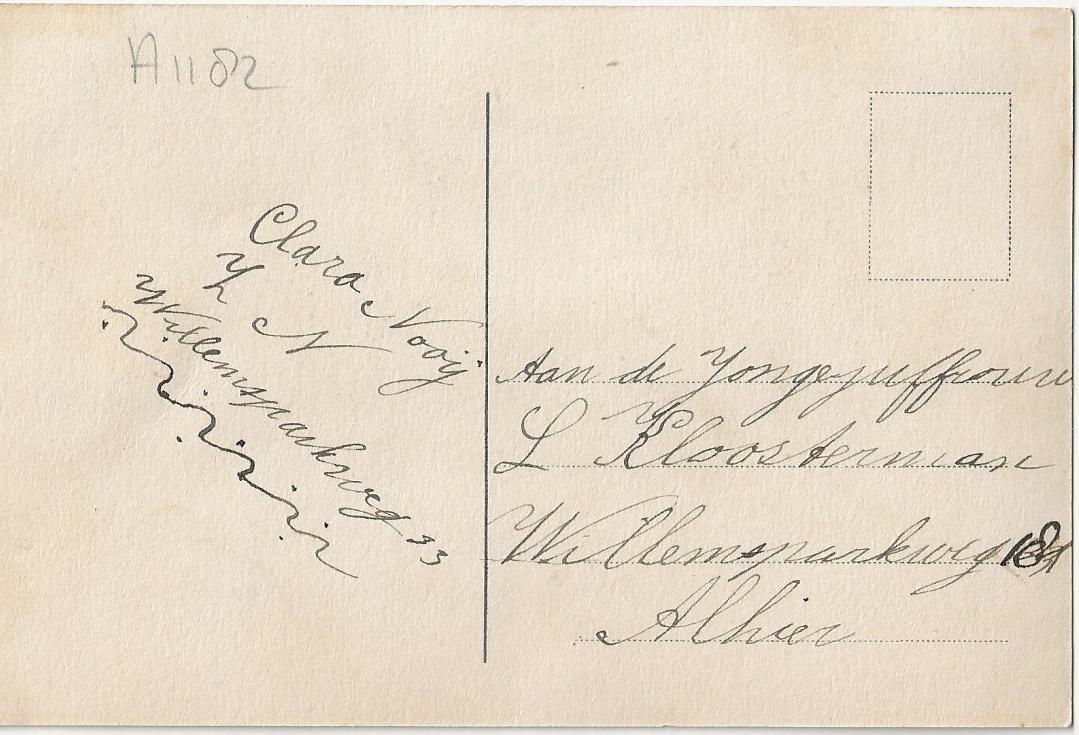 A1182
Clara Nooij
Z N
Willemsparkweg 33
Aan de Jongejuffrouw
L Kloosterman
Willemsparkweg
Alhier